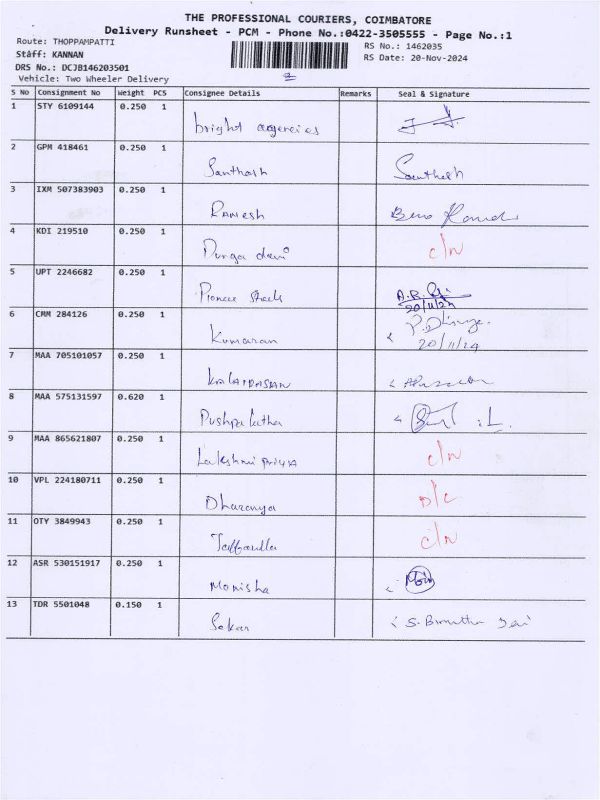 THE PROFESSIONAL COURIERS, COIMBATORE
Delivery Runsheet - PCM - Phone No.:0422-3505555 - Page No.:1
Route: THOPPAMPATTI
RS No.: 1462035
Staff: KANNAN
RS Date: 20-Nov-2024
DRS No.: DCJB146203501
Vehicle: Two Wheeler Delivery
S No Consignment No Weight PCS Consignee Details Remarks Seal & Signature
1 STY 6109144 0.250 1 bright agencies
2 GPM 418461 0.250 1 Santhosh Santhosh
3 IXM 507383903 0.250 1 Ramesh
4 KDI 219510 0.250 1 Durga devi C/N
5 UPT 2246682 0.250 1 20/11/24
6 CMM 284126 0.250 1 Kumaran 20/11/24
7 MAA 705101057 0.250 1 KALAIDASAN
8 MAA 575131597 0.620 1 Pushpalatha
9 MAA 865621807 0.250 1 Lakshmi priya C/N
10 VPL 224180711 0.250 1 Dharanya D/C
11 OTY 3849943 0.250 1 C/N
12 ASR 530151917 0.250 1 Monisha
13 TDR 5501048 0.150 1 Sekar